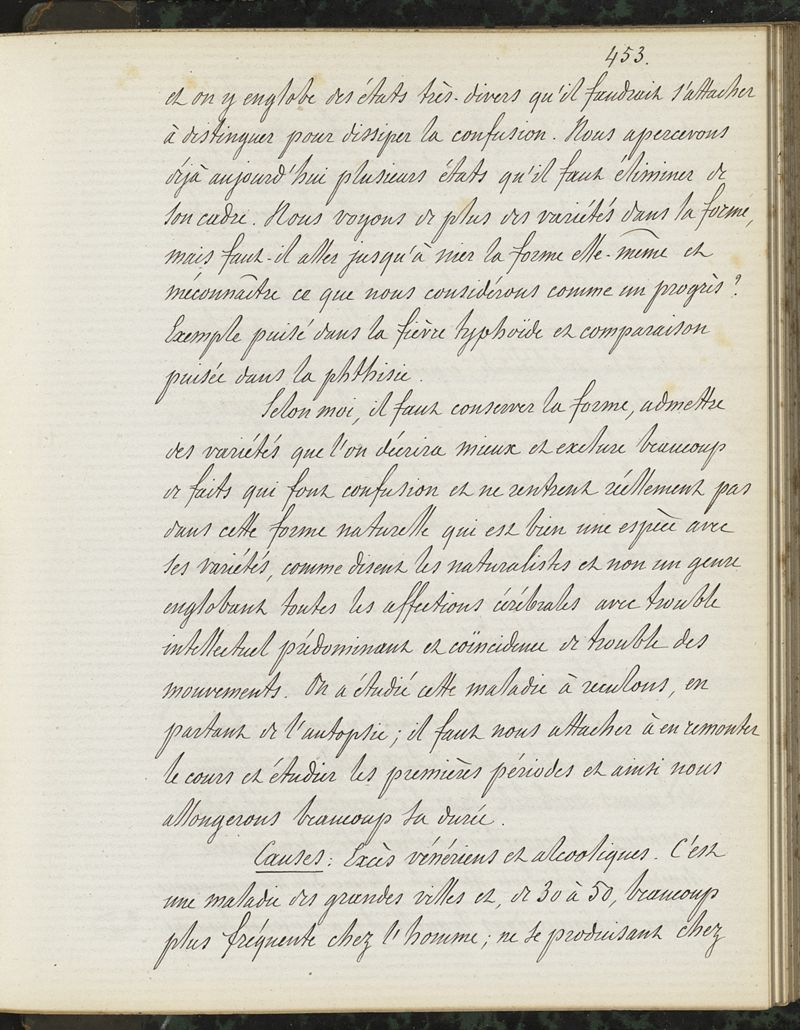 453.
et on y englobe des états très-divers qu'il faudrait s'attacher
à distinguer pour dissiper la confusion. Nous apercevons
déjà aujourd'hui plusieurs états qu'il faut éliminer de
son cadre. Nous voyons de plus des variétés dans la forme,
mais faut-il aller jusqu'à nier la forme elle-même et
méconnaître ce que nous considérons comme un progrès?
Exemple puisé dans la fièvre typhoïde et comparaison
puisée dans la phthisie.
Selon moi, il faut conserver la forme, admettre
des variétés que l'on décrira mieux et exclure beaucoup
de faits qui font confusion et ne rentrent réellement pas
dans cette forme naturelle qui est bien une espèce avec
ses variétés, comme disent les naturalistes et non un genre
englobant toutes les affections cérébrales avec trouble
intellectuel prédominant et coïncidence de trouble des
mouvements. On a étudié cette maladie à reculons, en
partant de l'autopsie; il faut nous attacher à en remonter
le cours et étudier les premières périodes et ainsi nous
allongerons beaucoup sa durée.
Causes: Excès vénériens et alcooliques. C'est
une maladie des grandes villes et, de 30 à 50, beaucoup
plus fréquente chez l'homme; ne se produisant chez